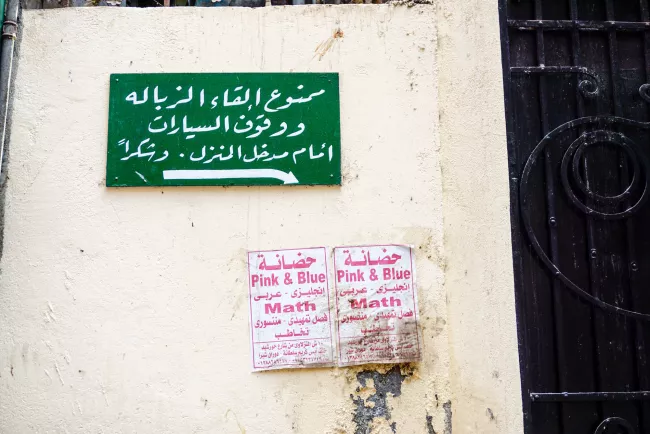 ممنوع القاء الزباله
ووقوف السيارات
أمام مدخل المنزل . وشكراً
حضانة
Pink & Blue
إنجليزى - عربى
Math
فصل تمهيدى - منتسورى
تخاطب
حضانة
Pink & Blue
إنجليزى - عربى
Math
فصل تمهيدى - منتسورى
تخاطب